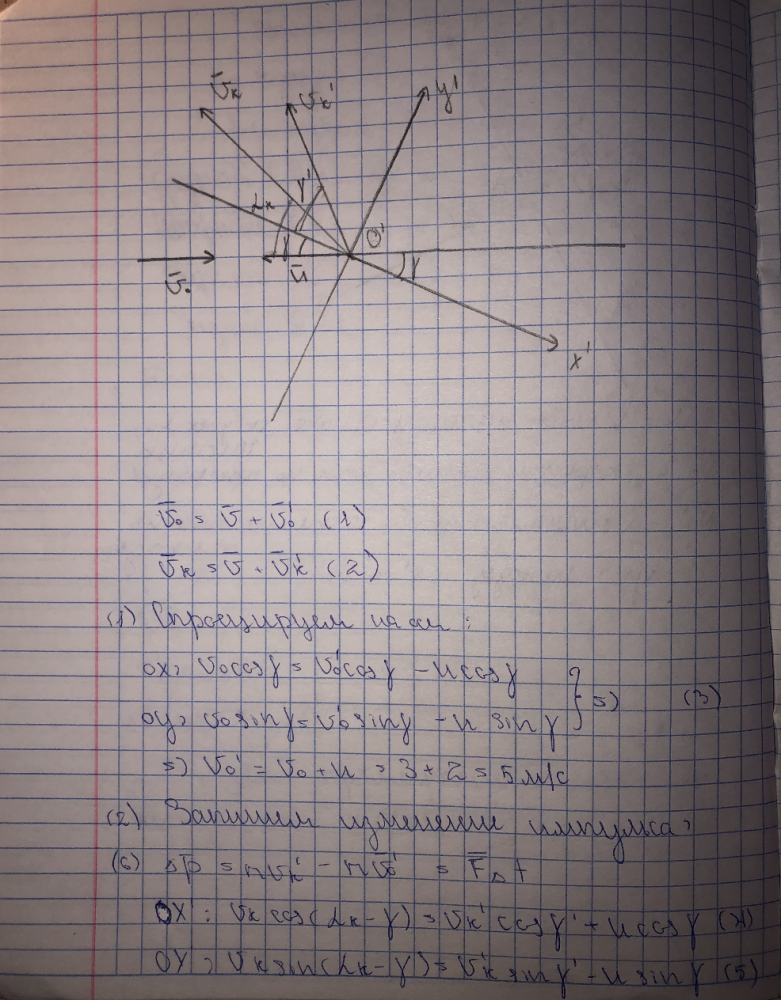 v̄к
vк'
y'
αк
γ'
O'
γ
ū
γ
v̄₀
x'
v̄₀ = v̄ + v̄₀' (1)
v̄к = v̄ + v̄к' (2)
(1) Спроецируем на оси:
ox: v₀cosγ = v₀'cosγ - ucosγ
oy: v₀sinγ = v₀'sinγ - u sinγ } => (3)
=> v₀' = v₀ + u = 3 + 2 = 5 м/с
(2) Запишем изменение импульса:
(6) Δp̄ = mv̄к' - mv̄₀' = F̄Δt
OX: vк cos(αк - γ) = vк' cosγ' + u cosγ (4)
OY: vк sin(αк - γ) = vк' sinγ' - u sinγ (5)